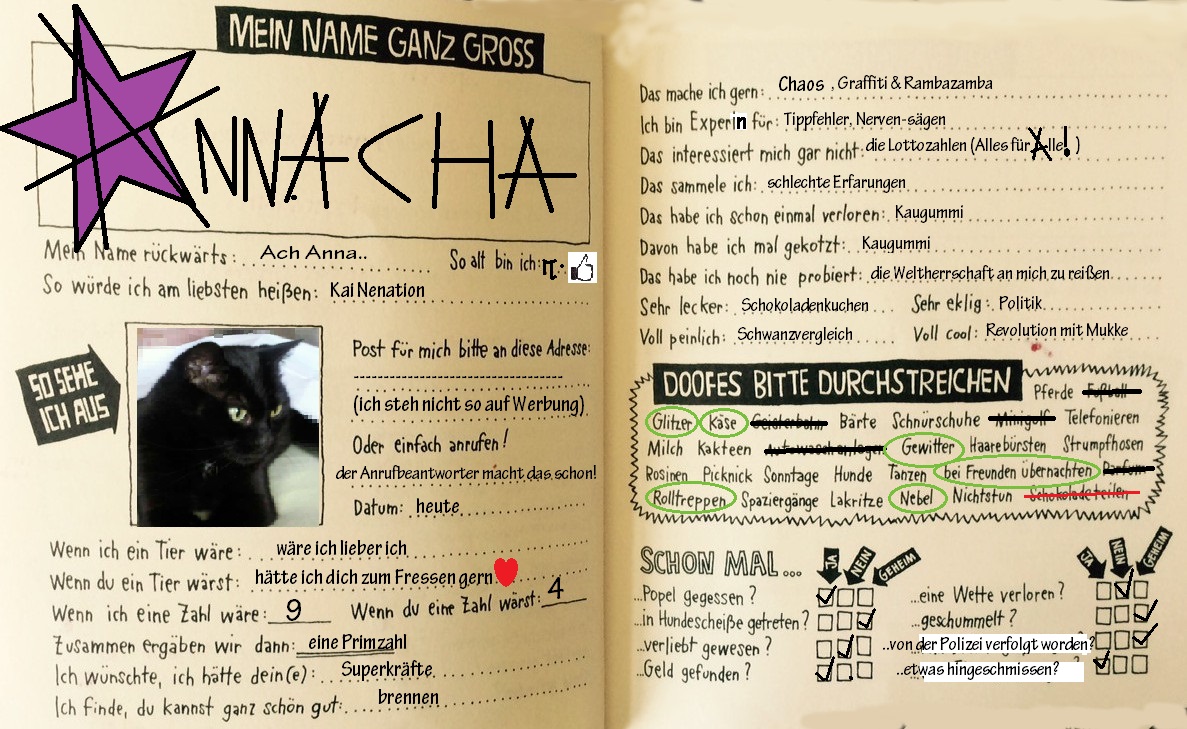 MEIN NAME GANZ GROSS
ANNACHA
Mein Name rückwärts: Ach Anna.. So alt bin ich: π:
So würde ich am liebsten heißen: Kai Nenation
SO SEHE ICH AUS
Post für mich bitte an diese Adresse:
(ich steh nicht so auf Werbung)
Oder einfach anrufen!
der Anrufbeantworter macht das schon!
Datum: heute
Wenn ich ein Tier wäre: wäre ich lieber ich
Wenn du ein Tier wärst: hätte ich dich zum Fressen gern
Wenn ich eine Zahl wäre: 9 Wenn du eine Zahl wärst: 4
Zusammen ergäben wir dann: eine Primzahl
Ich wünschte, ich hätte dein(e): Superkräfte
Ich finde, du kannst ganz schön gut: brennen
Das mache ich gern: Chaos , Graffiti & Rambazamba
Ich bin Experin für: Tippfehler, Nerven-sägen
Das interessiert mich gar nicht: die Lottozahlen (Alles für Alle! )
Das sammele ich: schlechte Erfarungen
Das habe ich schon einmal verloren: Kaugummi
Davon habe ich mal gekotzt: Kaugummi
Das habe ich noch nie probiert: die Weltherrschaft an mich zu reißen
Sehr lecker: Schokoladenkuchen Sehr eklig: Politik
Voll peinlich: Schwanzvergleich Voll cool: Revolution mit Mukke
DOOFES BITTE DURCHSTREICHEN Pferde Fußball
Glitzer Käse Geisterbahn Bärte Schnürschuhe Minigolf Telefonieren
Milch Kakteen Autowaschanlagen Gewitter Haarebürsten Strumpfhosen
Rosinen Picknick Sonntage Hunde Tanzen bei Freunden übernachten Parfüm
Rolltreppen Spaziergänge Lakritze Nebel Nichtstun Schokolade teilen
SCHON MAL... JA NEIN GEHEIM JA NEIN GEHEIM
...Popel gegessen? ...eine Wette verloren?
...in Hundescheiße getreten? ...geschummelt?
...verliebt gewesen? ...von der Polizei verfolgt worden?
...Geld gefunden? ...etwas hingeschmissen?